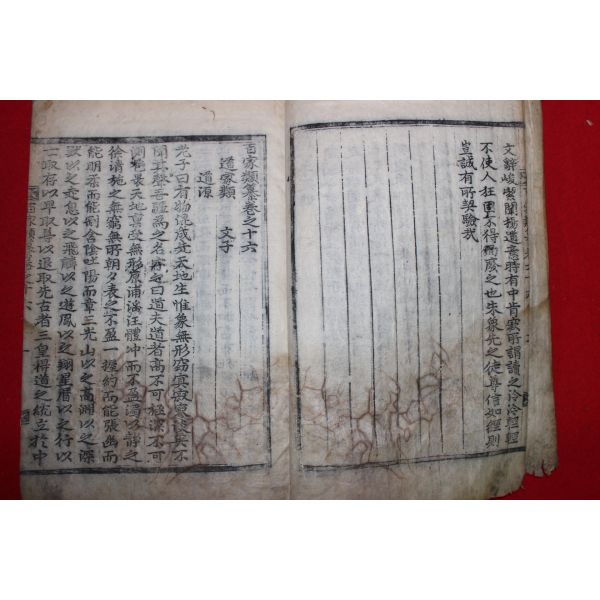 文辭峻繁闡揚遺意時有中肯綮所謂讀之泠泠輕輕
不使人狂固不得而廢之也朱象先之徒尊信如經則
豈誠有所契驗哉
百家類纂卷之十六
道家類 文子
道源
老子曰有物混成先天地生惟象無形窈窈冥冥寂寥淡漠不
聞其聲吾强爲之名字之曰道夫道者高不可極深不可
測苞裹天地禀受無形原流泏泏沖而不盈濁以靜之
徐清施之無窮無所朝夕表之不盈一握約而能張幽而
能明柔而能剛含陰吐陽而章三光山以之高淵以之深
獸以之走鳥以之飛麟以之遊鳳以之翔星曆以之行以
亡取存以卑取尊以退取先古者三皇得道之統立於中